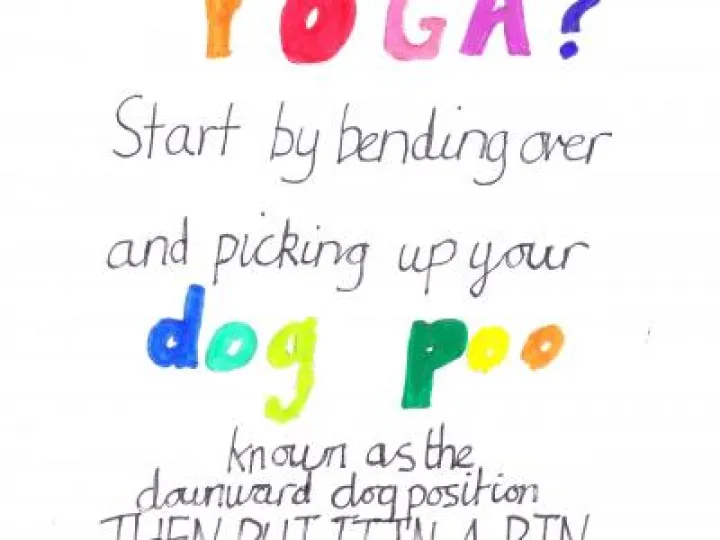 YOGA?
Start by bending over
and picking up your
dog poo
known as the
downward dog position
THEN PUT IT IN A BIN